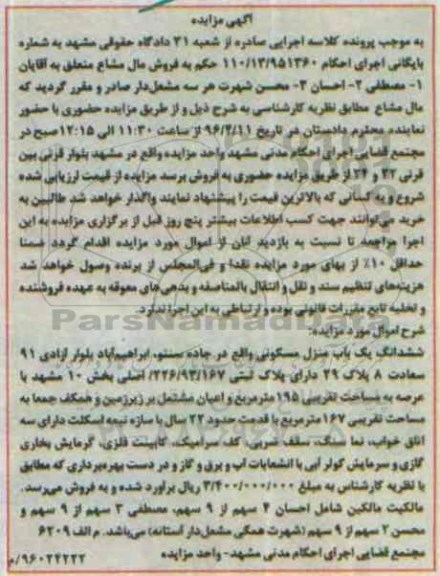 آگهی مزایده
به موجب پرونده کلاسه اجرایی صادره از شعبه ۳۱ دادگاه حقوقی مشهد به شماره
بایگانی اجرای احکام ۱۱۰/۱۳/۹۵۱۳۶۰ حکم به فروش مال مشاع متعلق به آقایان
۱- مصطفی ۲- احسان ۳- محسن شهرت هر سه مشعل‌دار صادر و مقرر گردید که
مال مشاع مطابق نظریه کارشناسی به شرح ذیل و از طریق مزایده حضوری با حضور
نماینده محترم دادستان در تاریخ ۹۶/۴/۱۱ از ساعت ۱۱:۳۰ الی ۱۲:۱۵ صبح در
مجتمع قضایی اجرای احکام مدنی مشهد واحد مزایده واقع در مشهد بلوار قرنی بین
قرنی ۲۲ و ۲۴ از طریق مزایده حضوری به فروش برسد مزایده از قیمت ارزیابی شده
شروع و به کسانی که بالاترین قیمت را پیشنهاد نمایند واگذار خواهد شد طالبین به
خرید می‌توانند جهت کسب اطلاعات بیشتر پنج روز قبل از برگزاری مزایده به این
اجرا مراجعه تا نسبت به بازدید آنان از اموال مورد مزایده اقدام گردد ضمنا
حداقل ۱۰٪ از بهای مورد مزایده نقدا و فی‌المجلس از برنده وصول خواهد شد
هزینه‌های تنظیم سند و نقل و انتقال بالمناصفه و بدهی‌های معوقه به عهده فروشنده
و تخلیه تابع مقررات قانونی بوده و ارتباطی به این اجرا ندارد.
ParsNamadData
شرح اموال مورد مزایده:
ششدانگ یک باب منزل مسکونی واقع در جاده سنتو، ابراهیم‌آباد بلوار آزادی ۹۱
سعادت ۸ پلاک ۲۹ دارای پلاک ثبتی ۲۲۶/۹۳/۱۶۷ اصلی بخش ۱۰ مشهد با
عرصه به مساحت تقریبی ۱۹۵ مترمربع و اعیان مشتمل بر زیرزمین و همکف جمعا به
مساحت تقریبی ۱۶۷ مترمربع با قدمت حدود ۲۲ سال با سازه نیمه اسکلت دارای سه
اتاق خواب، نما سنگ، سقف ضربی، کف سرامیک، کابینت فلزی، گرمایش بخاری
گازی و سرمایش کولر آبی با انشعابات آب و برق و گاز و در دست بهره‌برداری که مطابق
با نظریه کارشناس به مبلغ ۳/۴۰۰/۰۰۰/۰۰۰ ریال برآورد شده و به فروش می‌رسد.
مالکیت مالکین شامل احسان ۴ سهم از ۹ سهم، مصطفی ۳ سهم از ۹ سهم و
محسن ۲ سهم از ۹ سهم (شهرت همگی مشعل‌دار آستانه) می‌باشد. م الف ۶۲۰۹
مجتمع قضایی اجرای احکام مدنی مشهد- واحد مزایده
۹۶۰۲۴۲۲۲/م